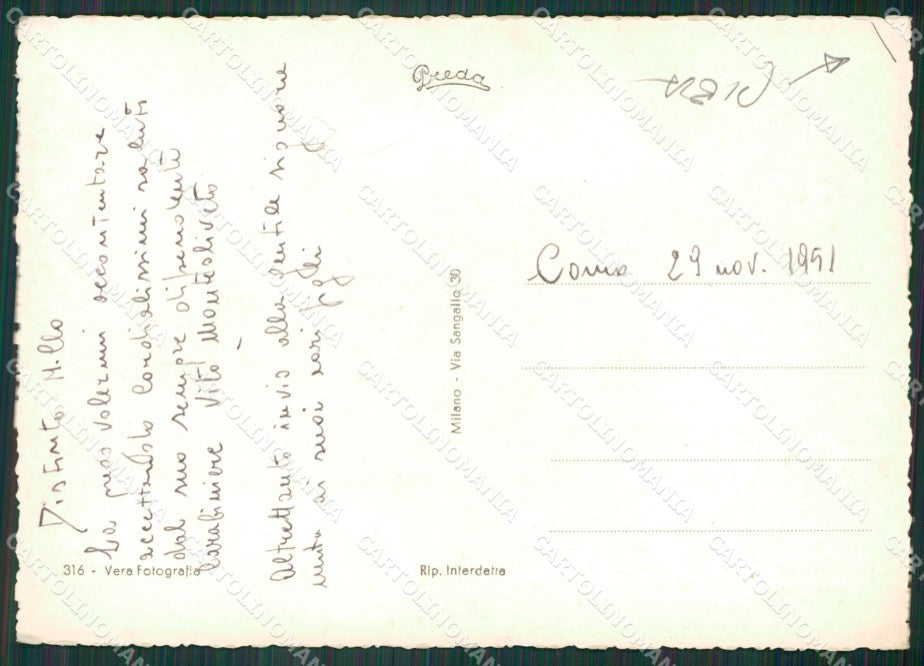 Distinto M.llo
La prego volermi accontentare
accettando cordialissimi saluti
dal suo sempre dipendente
Carabiniere Vito Monteoliveto
Altrettanto invio alla gentile signora
unita ai suoi cari figli
316 - Vera Fotografia
Breda
Milano - Via Sangallo 30
Rip. Interdetta
Como 29 nov. 1951
CARTOLINOMANIA